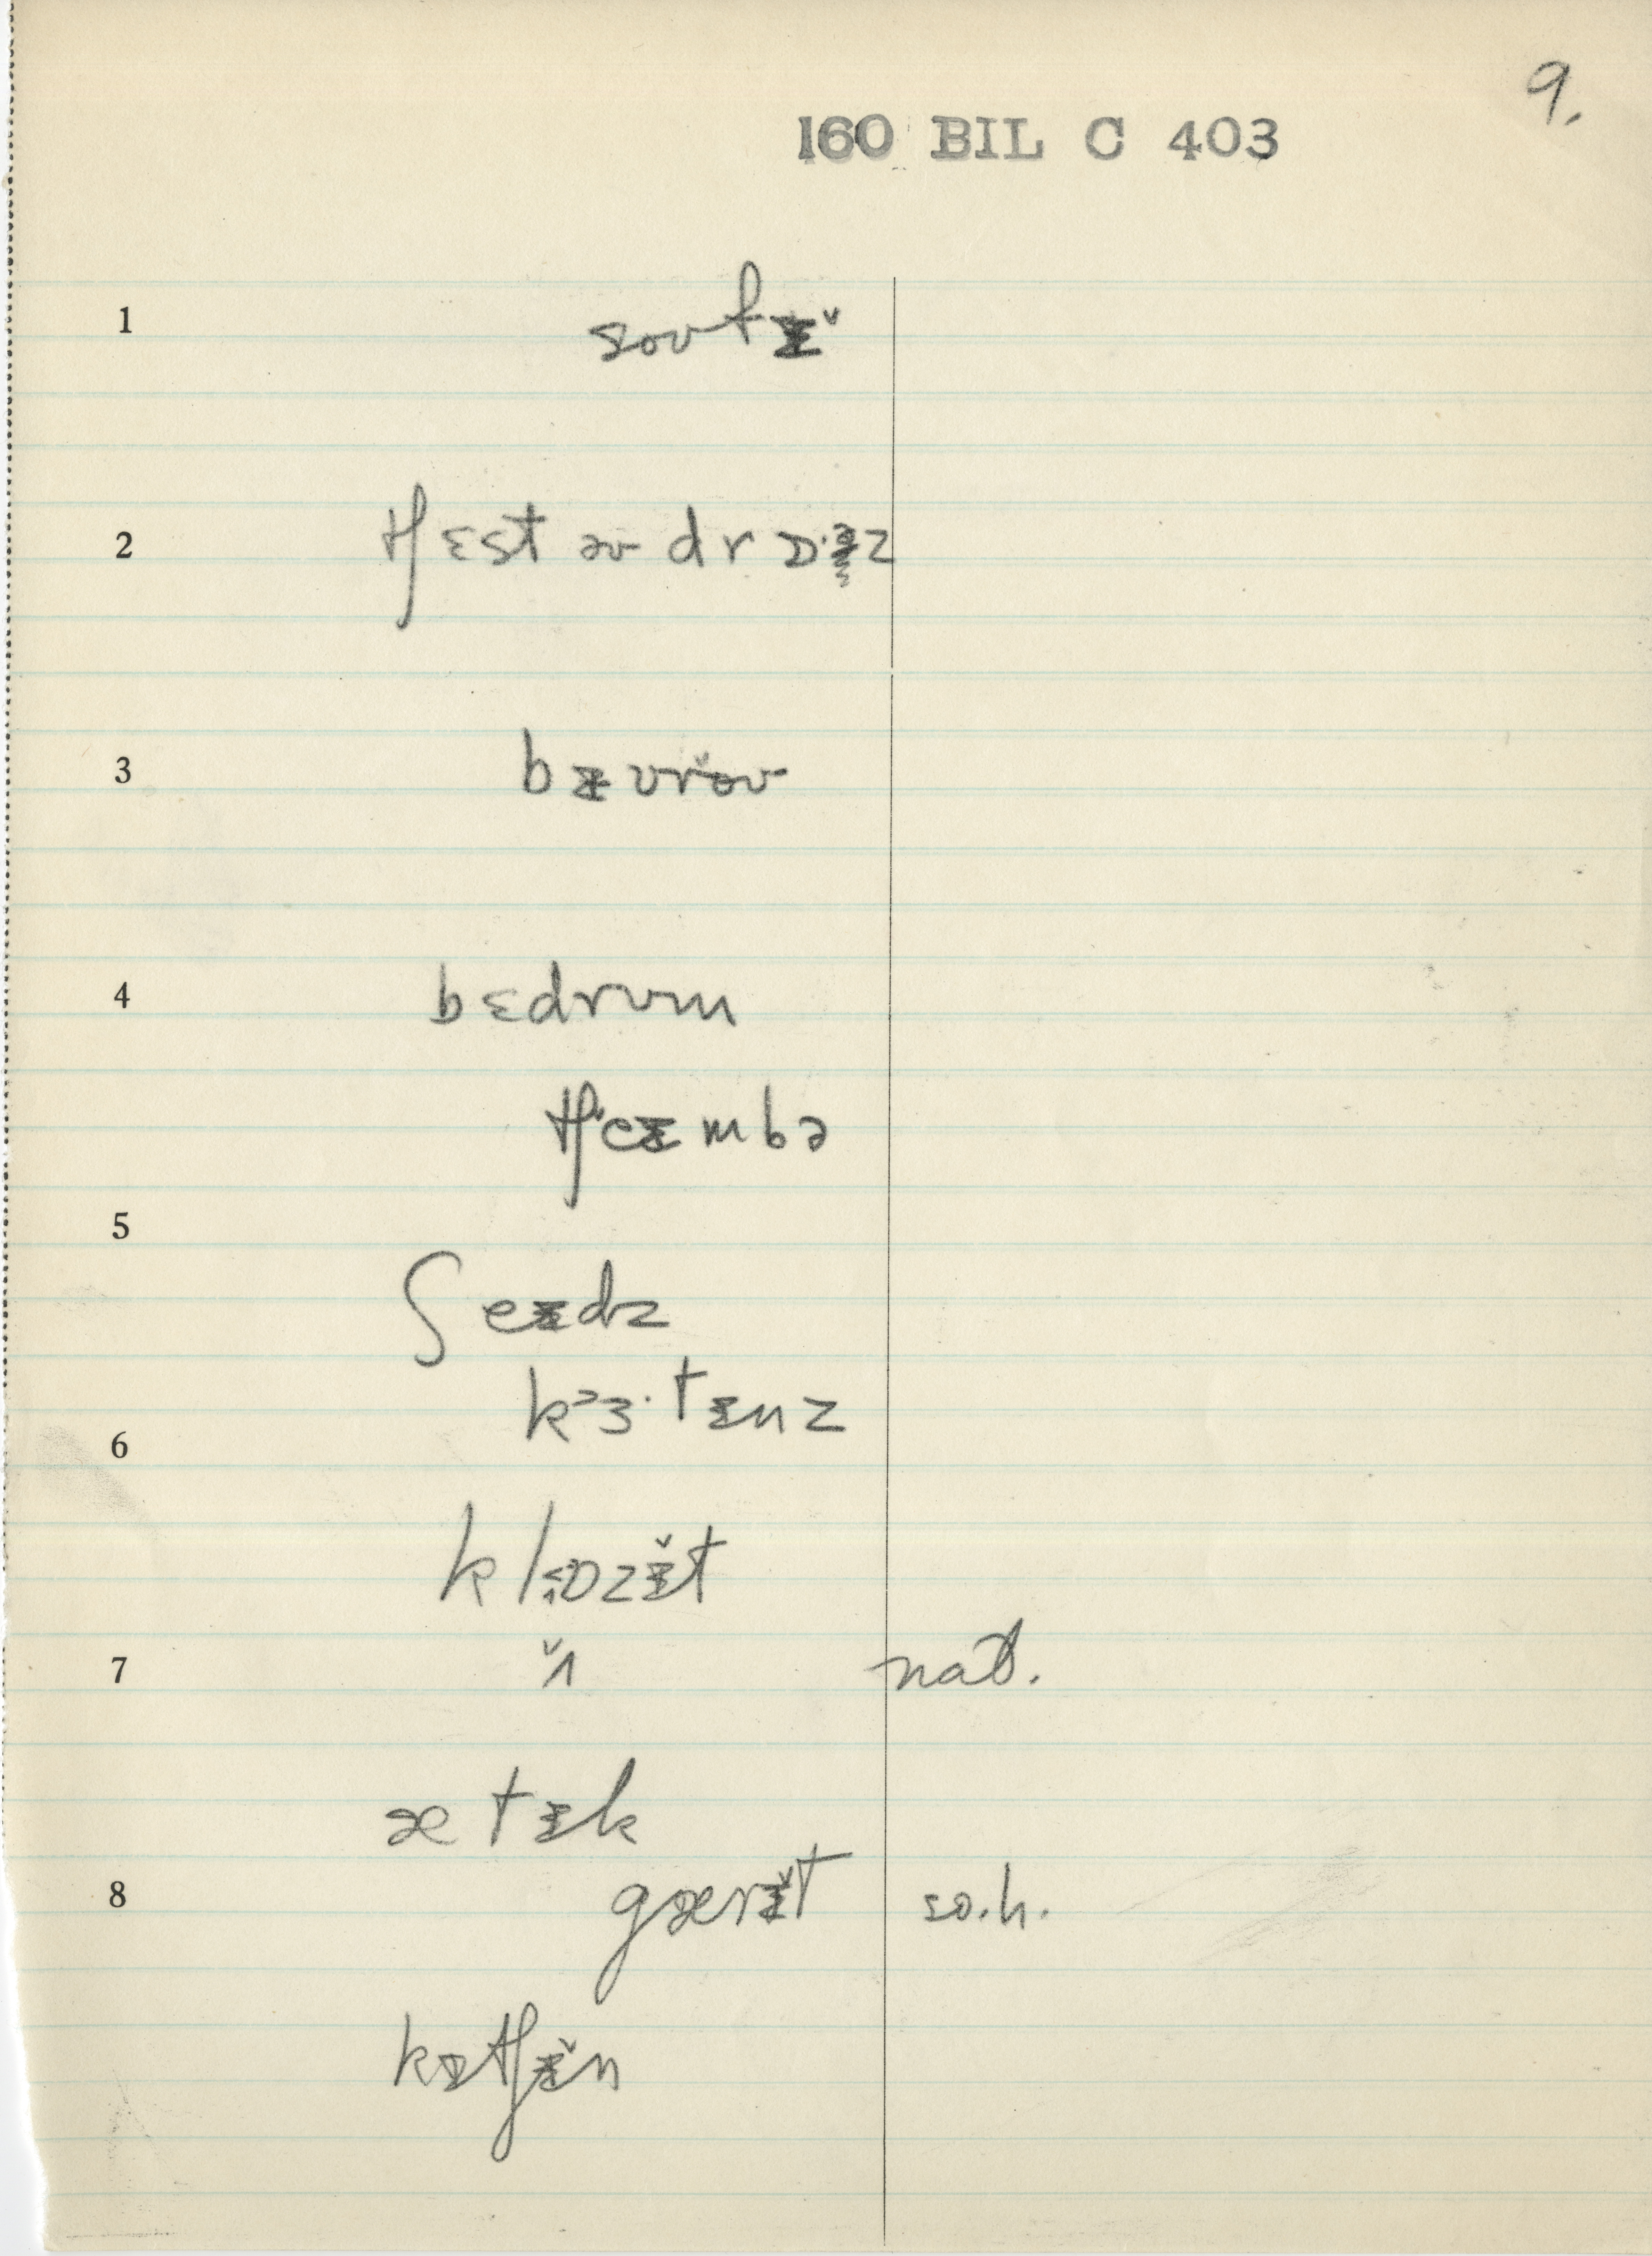 9.
160 BIL C 403
1 soʊfɪ̵ˇ
2 tʃɛst əv drɒ·əz
3 bɪ̵ʊr̆oʊ
4 bɛdrʊm
tʃʻeɪ̵mbə
5
ʃeɪ̵dz
kʻɜ·tɪ̵nz
6
klɒzɪ̵̆t
7 ˇʌ nat.
ætɪ̵k
8 gærɪ̵̆t so.h.
kɪ̵tʃɪ̵̆n